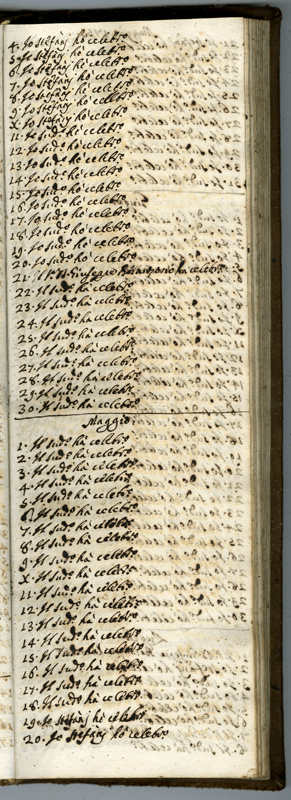 4. Io Stefanj hò celebro
5. Io Stefanj hò celebro
6. Io Stefanj hò celebro
7. Io Stefanj hò celebro
8. Io Stefanj hò celebro
9. Io Stefanj hò celebro
X. Io Stefanj hò celebro
11. Io sudo hò celebro
12. Io sudo hò celebro
13. Io sudo hò celebro
14. Io sudo hò celebro
15. Io sudo hò celebro
16. Io sudo hò celebro
17. Io sudo hò celebro
18. Io sudo hò celebro
19. Io sudo hò celebro
20. Io sudo hò celebro
21. Il P. Giuseppe hà celebro
22. Il sudo hà celebro
23. Il sudo hà celebro
24. Il sudo hà celebro
25. Il sudo hà celebro
26. Il sudo hà celebro
27. Il sudo hà celebro
28. Il sudo hà celebro
29. Il sudo hà celebro
30. Il sudo hà celebro
Maggio
1. Il sudo hà celebro
2. Il sudo hà celebro
3. Il sudo hà celebro
4. Il sudo hà celebro
5. Il sudo hà celebro
6. Il sudo hà celebro
7. Il sudo hà celebro
8. Il sudo hà celebro
9. Il sudo hà celebro
X. Il sudo hà celebro
11. Il sudo hà celebro
12. Il sudo hà celebro
13. Il sudo hà celebro
14. Il sudo hà celebro
15. Il sudo hà celebro
16. Il sudo hà celebro
17. Il sudo hà celebro
18. Il sudo hà celebro
19. Io Stefanj hò celebro
20. Io Stefanj hò celebro